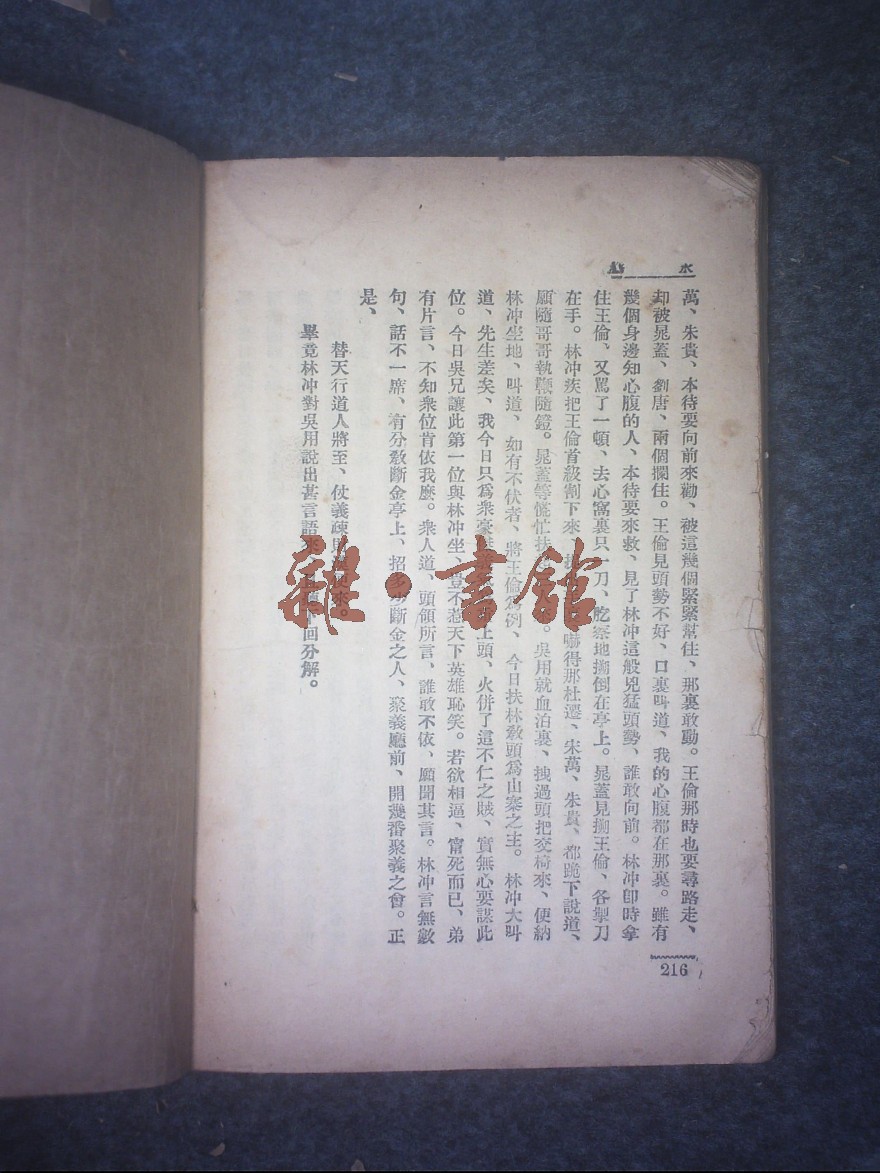 水
萬、朱貴、本待要向前來勸、被這幾個緊緊幫住、那裏敢動。王倫那時也要尋路走、
却被晁蓋、劉唐、兩個攔住。王倫見頭勢不好、口裏叫道、我的心腹都在那裏。雖有
幾個身邊知心腹的人、本待要來救、見了林冲這般兇猛頭勢、誰敢向前。林冲卽時拿
住王倫、又罵了一頓、去心窩裏只一刀、肐察地搠倒在亭上。晁蓋見搠王倫、各掣刀
在手。林冲疾把王倫首級割下來、嚇得那杜遷、宋萬、朱貴、都跪下說道、
願隨哥哥執鞭隨鐙。晁蓋等慌忙扶。吳用就血泊裏、拽過頭把交椅來、便納
林冲坐地、叫道、如有不伏者、將王倫爲例、今日扶林敎頭爲山寨之主。林冲大叫
道、先生差矣、我今日只爲衆豪上頭、火併了這不仁之賊、實無心要謀此
位。今日吳兄讓此第一位與林冲坐、豈不惹天下英雄恥笑。若欲相逼、甯死而已、弟
有片言、不知衆位肯依我麽。衆人道、頭領所言、誰敢不依、願聞其言。林冲言無數
句、話不一席、有分敎斷金亭上、招多少斷金之人、聚義廳前、開幾番聚義之會。正
是、
替天行道人將至、仗義疎來。
畢竟林冲對吳用說出甚言語回分解。
216
雜·書館